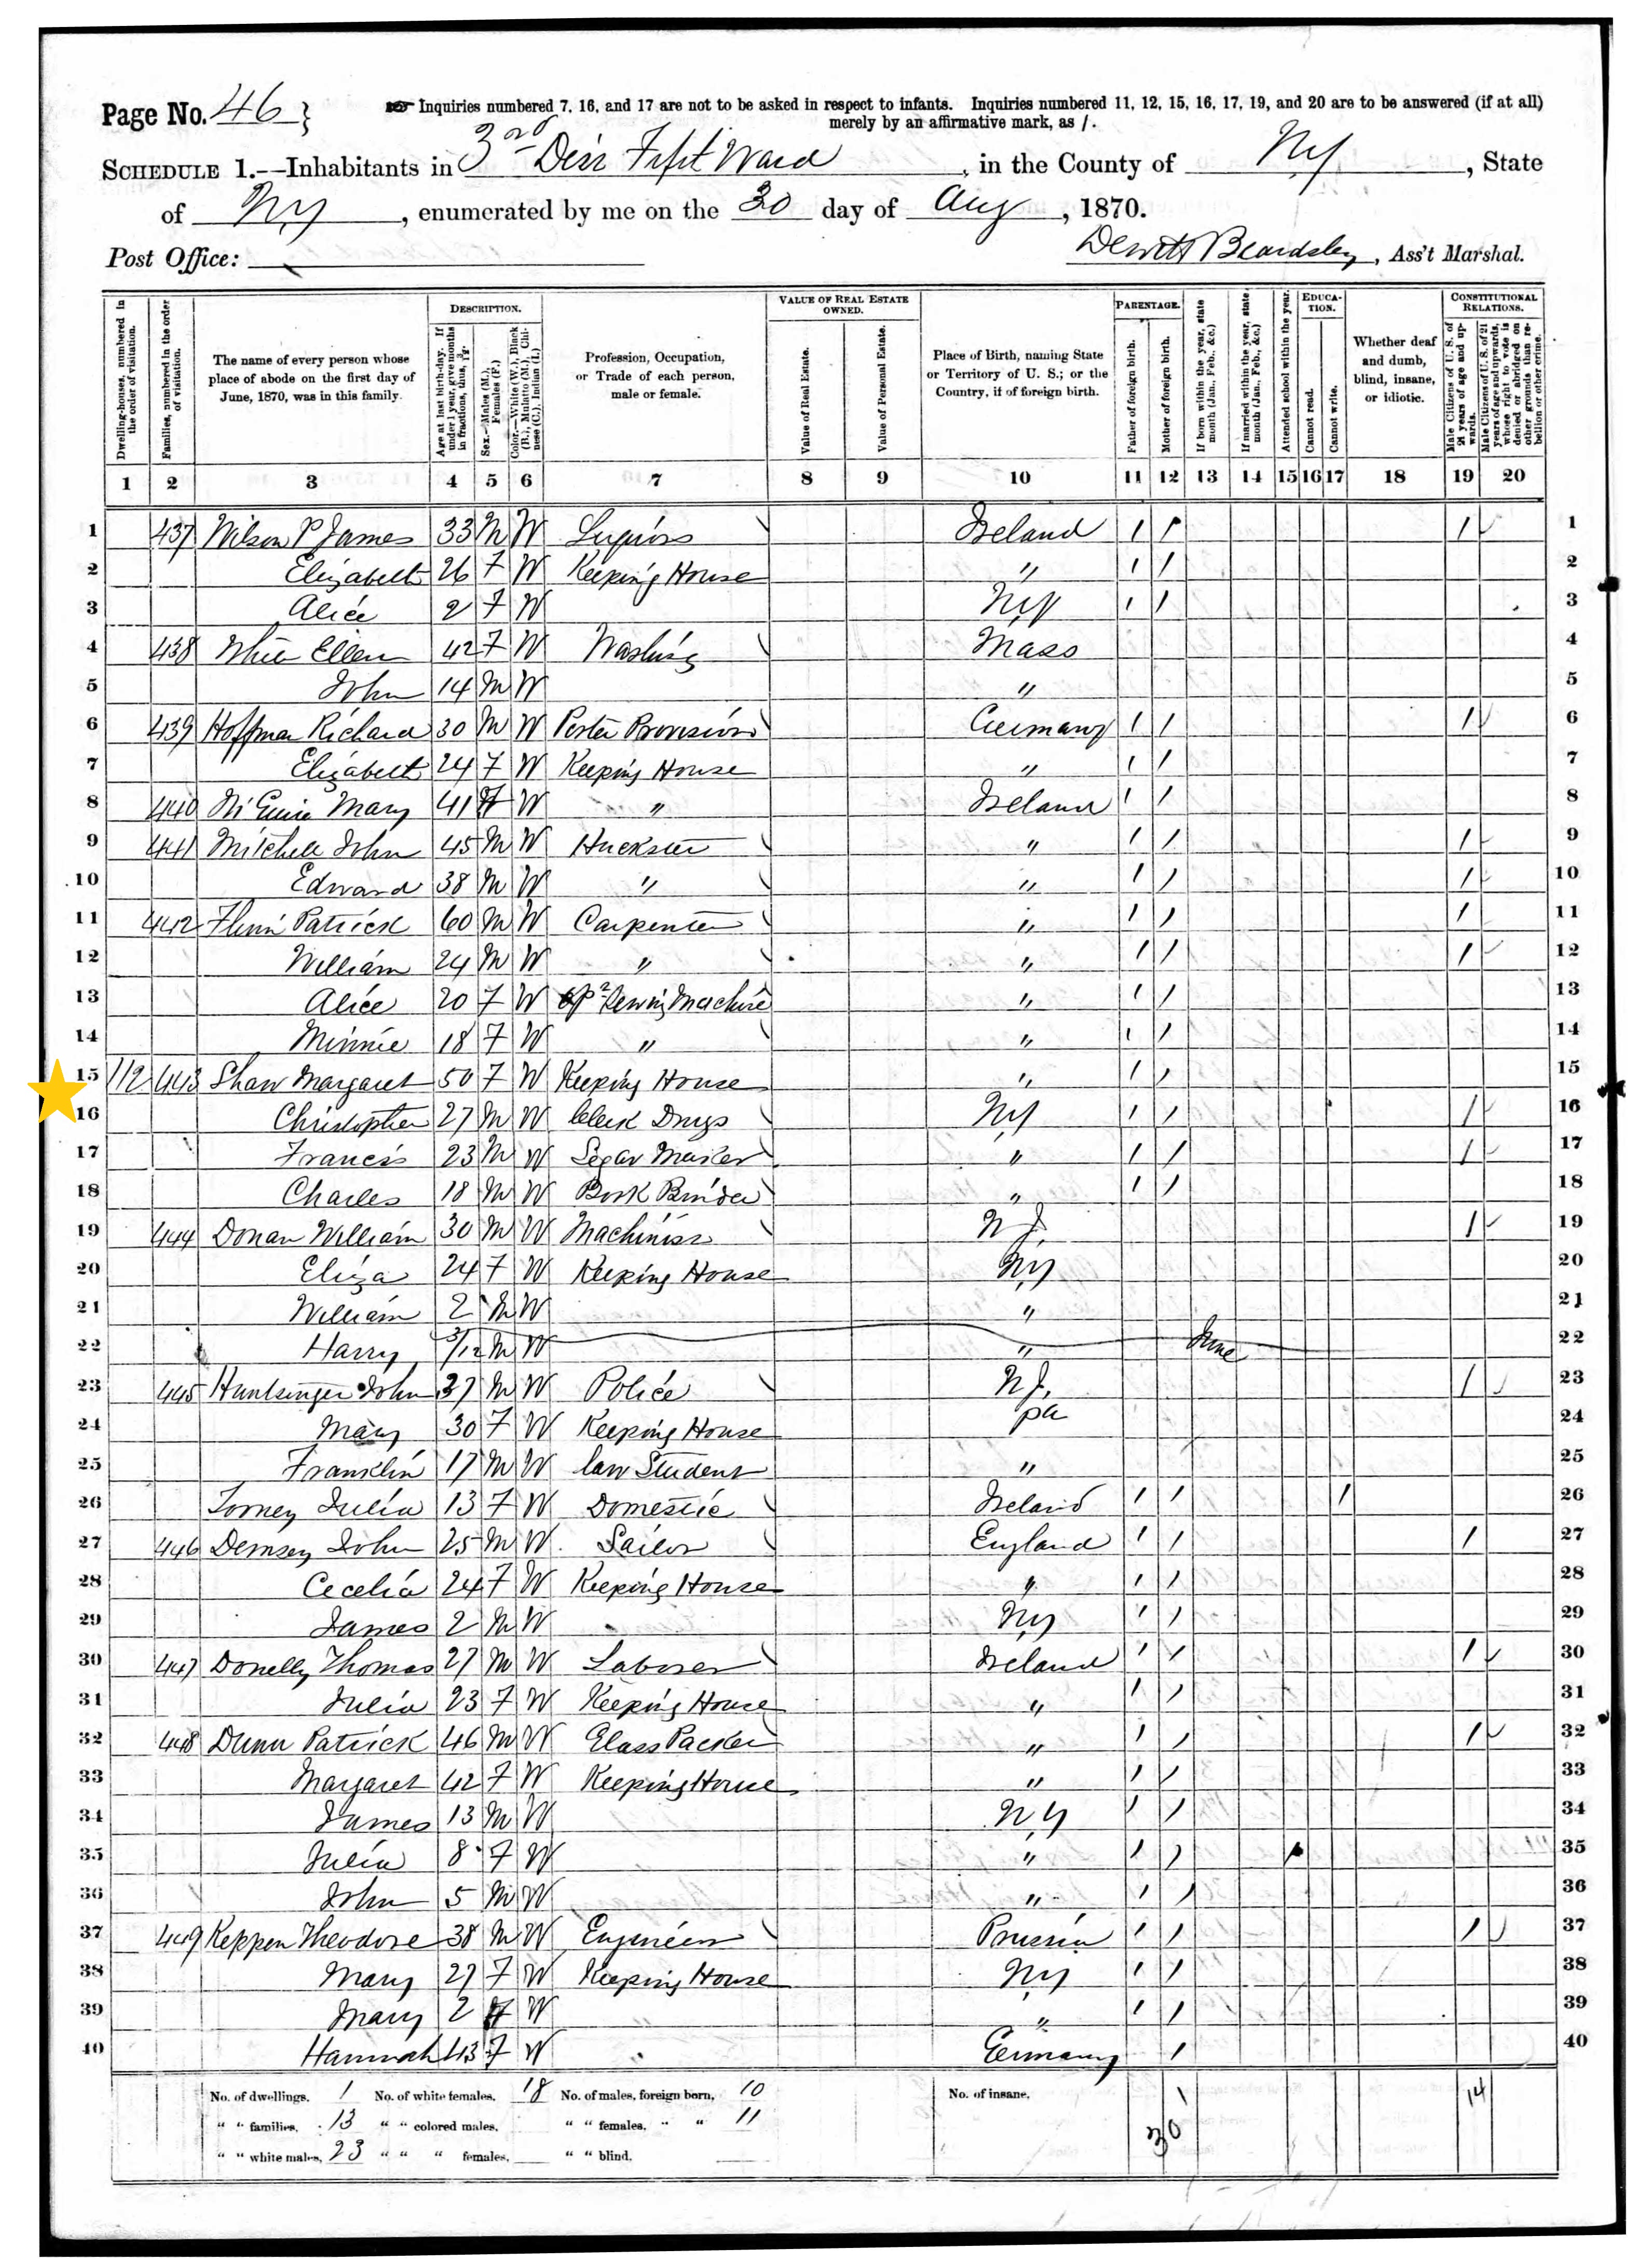 Page No. 46
Inquiries numbered 7, 16, and 17 are not to be asked in respect to infants. Inquiries numbered 11, 12, 15, 16, 17, 19, and 20 are to be answered (if at all)
merely by an affirmative mark, as /.
SCHEDULE 1.—Inhabitants in 3rd Ward, in the County of NY, State
of NY, enumerated by me on the 30 day of Aug, 1870.
Post Office:
Dewitt Beardsley, Ass't Marshal.
Dwelling-houses, numbered in the order of visitation.
Families, numbered in the order of visitation.
The name of every person whose place of abode on the first day of June, 1870, was in this family.
DESCRIPTION.
Age at last birth-day. If under 1 year, give months in fractions, thus, 3/12.
Sex.—Males (M.), Females (F.)
Color.—White (W.), Black (B.), Mulatto (M.), Chinese (C.), Indian (I.)
Profession, Occupation, or Trade of each person, male or female.
VALUE OF REAL ESTATE OWNED.
Value of Real Estate.
Value of Personal Estate.
Place of Birth, naming State or Territory of U. S.; or the Country, if of foreign birth.
PARENTAGE.
Father of foreign birth.
Mother of foreign birth.
If born within the year, state month (Jan., Feb., &c.)
If married within the year, state month (Jan., Feb., &c.)
Attended school within the year.
EDUCATION.
Cannot read.
Cannot write.
Whether deaf and dumb, blind, insane, or idiotic.
CONSTITUTIONAL RELATIONS.
Male Citizens of U. S. of 21 years of age and upwards.
Male Citizens of U. S. of 21 years of age and upwards, whose right to vote is denied or abridged on other grounds than rebellion or other crime.
1 2 3 4 5 6 7 8 9 10 11 12 13 14 15 16 17 18 19 20
1 437 Wilson P James 33 M W Ireland / / / 1
2 Elizabeth 26 F W Keeping House " / / 2
3 Alice 2 F W NY / / 3
4 438 Ellen 42 F W Washing Mass 4
5 John 14 M W " 5
6 439 Hoffman Richard 30 M W Porter Provisions Germany / / / 6
7 Elizabeth 24 F W Keeping House " / / 7
8 440 McGuire Mary 41 F W " Ireland / / 8
9 441 Mitchell John 45 M W Huckster " / / / 9
10 Edward 38 M W " " / / / 10
11 442 Flinn Patrick 60 M W Carpenter " / / / 11
12 William 24 M W " " / / / 12
13 Alice 20 F W Sewing Machine " / / 13
14 Minnie 18 F W " " / / 14
15 112 443 Shaw Margaret 50 F W Keeping House " / / 15
16 Christopher 27 M W Clerk Drugs NY / / / 16
17 Francis 23 M W Segar Maker " / / / 17
18 Charles 18 M W Book Binder " / / 18
19 444 Donan William 30 M W Machinist N J. / 19
20 Eliza 24 F W Keeping House NY 20
21 William 2 M W " 21
22 Harry 3/12 M W " June 22
23 445 Huntsinger John 37 M W Police N J. / 23
24 Mary 30 F W Keeping House pa 24
25 Franklin 17 M W law Student " 25
26 Torney Julia 13 F W Domestic Ireland / / / 26
27 446 Demsey John 25 M W Sailor England / / / 27
28 Cecelia 24 F W Keeping House " / / 28
29 James 2 M W NY / / 29
30 447 Donelly Thomas 27 M W Laborer Ireland / / / 30
31 Julia 23 F W Keeping House " / / 31
32 448 Dunn Patrick 46 M W Glass Packer " / / / 32
33 Margaret 42 F W Keeping House " / / 33
34 James 13 M W N Y / / 34
35 Julia 8 F W " / / / 35
36 John 5 M W " / / 36
37 449 Keppen Theodore 38 M W Engineer Prussia / / / 37
38 Mary 27 F W Keeping House NY / / 38
39 Mary 2 F W " / / 39
40 Hannah 43 F W Germany / 40
No. of dwellings, 1 No. of white females, 18 No. of males, foreign born, 10 No. of insane,
" " families, 13 " " colored males, " " females, " " 11
" " white males, 23 " " " females, " " blind,
30 14